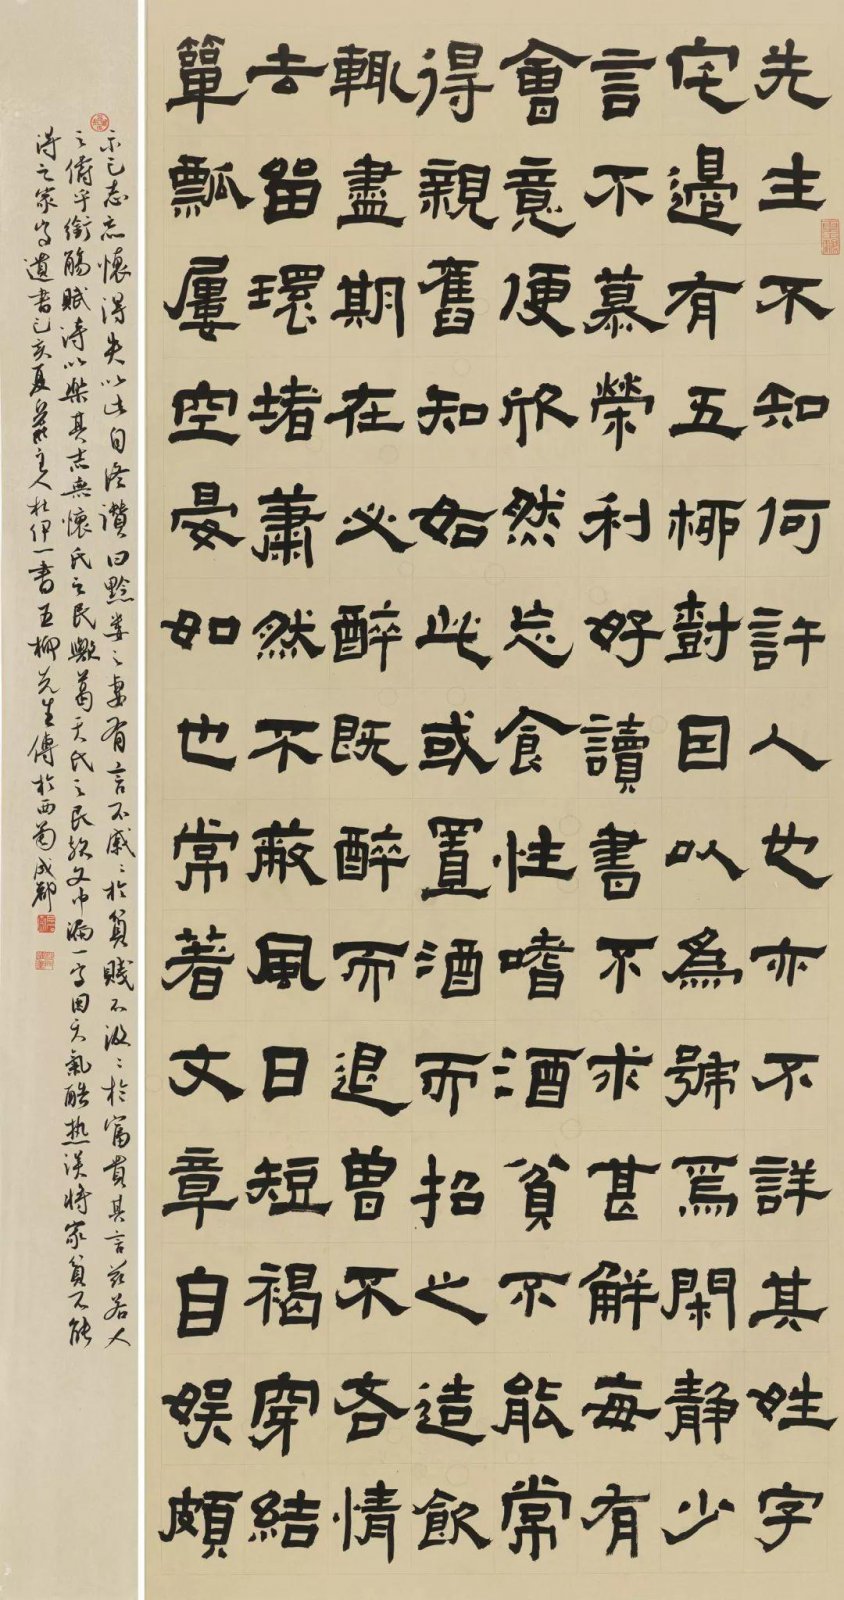 先生不知何許人也亦不詳其姓字
宅邊有五柳對因以為號焉閑静少
言不慕榮利好讀書不求甚解每有
會意便欣然忘食性嗜酒貧不能常
得親舊知如此或置酒而招之造飲
輒盡期在必醉既醉而退曾不吝情
去留環堵蕭然不蔽風日短褐穿結
簞瓢屢空晏如也常著文章自娱頗
示己志忘懷得失以此自終讚曰黔婁之妻有言不戚〻於貧賤不汲〻於富貴其言茲若人
之儔乎銜觴賦詩以樂其志無懷氏之民歟葛天氏之民歟文中漏一字因天氣酷热誤將家貧不能
得之家字遺書己亥夏主人杜伊一書五柳先生傳於西蜀成都